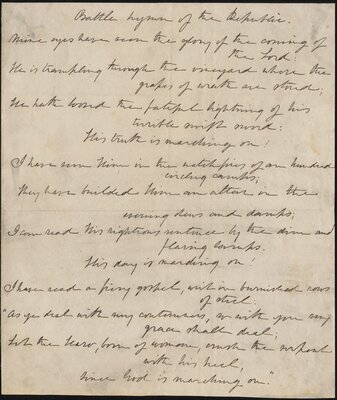 Battle hymn of the Republic.
Mine eyes have seen the glory of the coming of
the Lord:
He is trampling through the vineyard where the
grapes of wrath are stored;
He hath loosed the fateful lightning of his
terrible swift sword:
His truth is marching on!
I have seen Him in the watch-fires of an hundred
circling camps;
They have builded Him an altar in the
evening dews and damps;
I can read His righteous sentence by the dim and
flaring lamps.
His day is marching on!
I have read a fiery gospel, writ in burnished rows
of steel:
"As ye deal with my contemners, so with you my
grace shall deal;
Let the Hero, born of woman, crush the serpent
with his heel,
Since God is marching on."